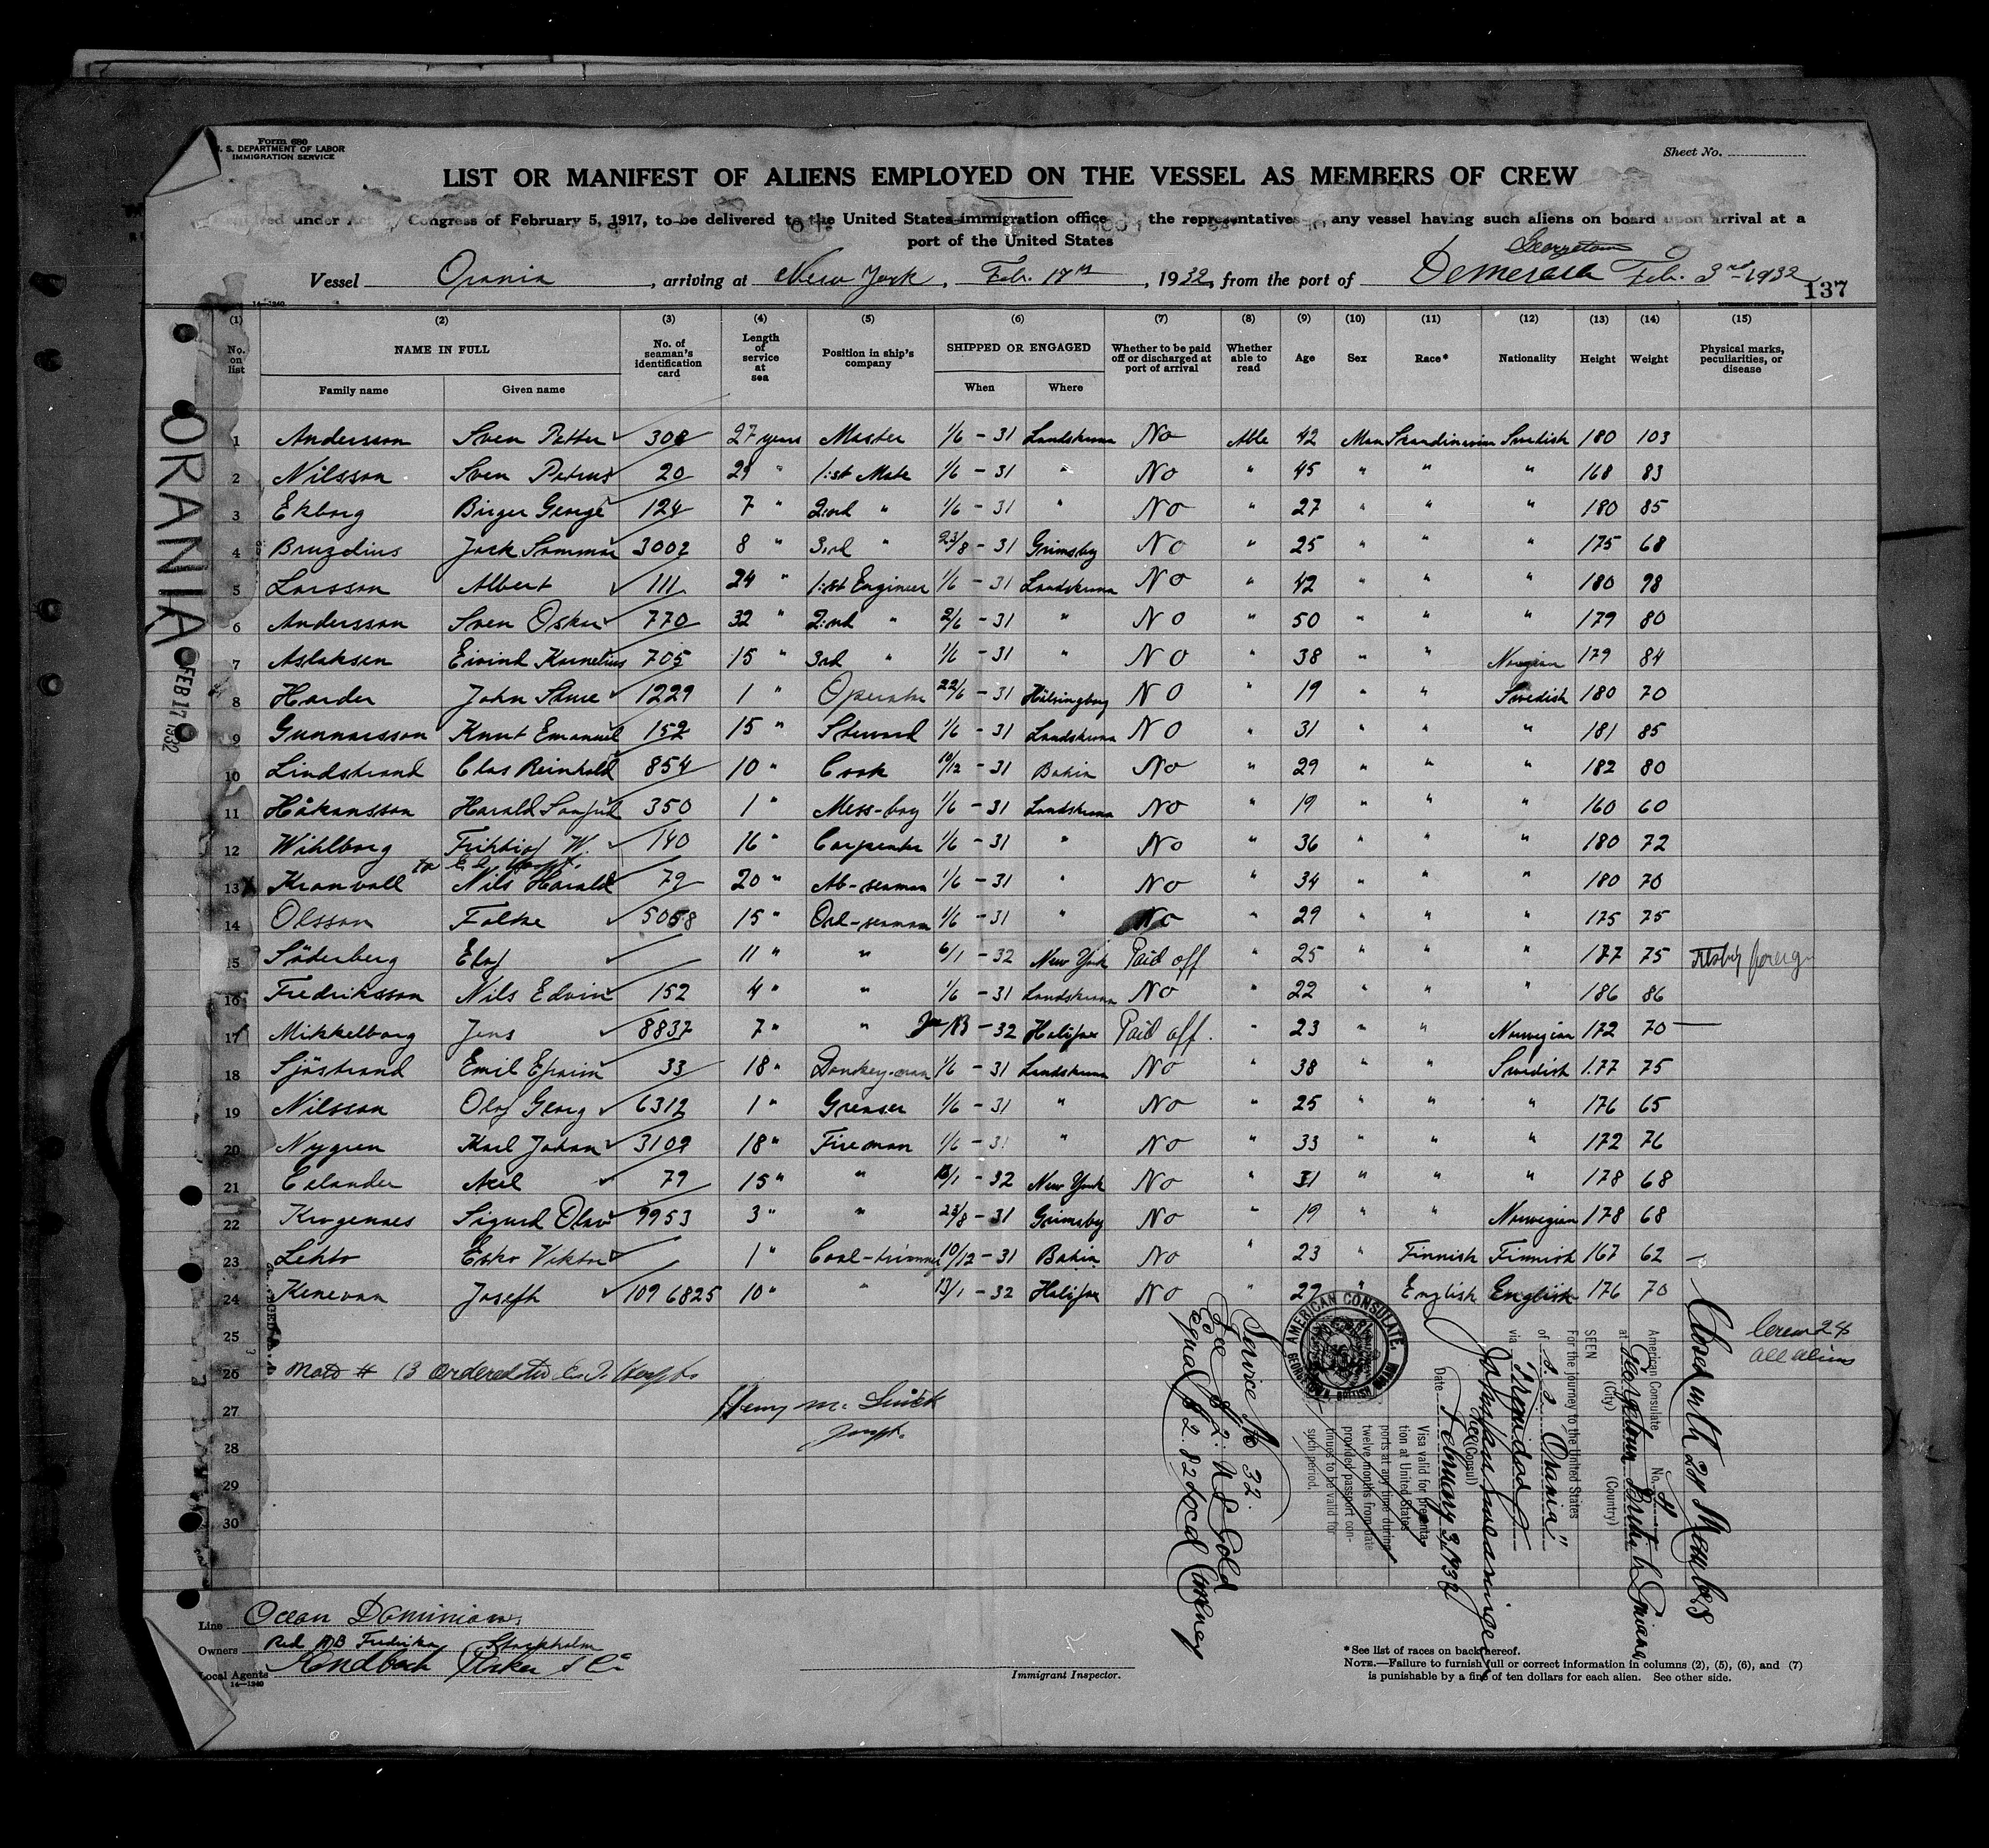 Form 680
U. S. DEPARTMENT OF LABOR
IMMIGRATION SERVICE
Sheet No.
LIST OR MANIFEST OF ALIENS EMPLOYED ON THE VESSEL AS MEMBERS OF CREW
under Act Congress of February 5, 1917, to be delivered to the United States immigration office the representatives any vessel having such aliens on board upon arrival at a
port of the United States
Georgetown
Vessel Orania, arriving at New York, Feb. 17th, 1932, from the port of Demerara Feb. 3rd 1932
137
14-1240
(1) (2) (3) (4) (5) (6) (7) (8) (9) (10) (11) (12) (13) (14) (15)
No. on list NAME IN FULL No. of seaman's identification card Length of service at sea Position in ship's company SHIPPED OR ENGAGED Whether to be paid off or discharged at port of arrival Whether able to read Age Sex Race* Nationality Height Weight Physical marks, peculiarities, or disease
Family name Given name When Where
1 Andersson Sven Petter 308 27 years Master 1/6 - 31 Landskrona No Able 42 Man Skandinavian Swedish 180 103
2 Nilsson Sven Petrus 20 29 " 1:st Mate 1/6 - 31 " No " 45 " " " 168 83
3 Ekborg Birger George 124 7 " 2:nd " 1/6 - 31 " No " 27 " " " 180 85
4 Bruzelius Jack Sommar 3002 8 " 3:rd " 23/8 - 31 Grimsby No " 25 " " " 175 68
5 Larsson Albert 111 24 " 1:st Engineer 1/6 - 31 Landskrona No " 42 " " " 180 98
6 Andersson Sven Oskar 770 32 " 2:nd " 2/6 - 31 " No " 50 " " " 179 80
7 Aslaksen Eivind Kornelius 705 15 " 3rd " 1/6 - 31 " No " 38 " " Norwegian 179 84
8 Harder John Sture 1229 1 " Operator 22/6 - 31 Hälsingborg No " 19 " " Swedish 180 70
9 Gunnarsson Knut Emanuel 152 15 " Steward 1/6 - 31 Landskrona No " 31 " " " 181 85
10 Lindstrand Clas Reinhold 854 10 " Cook 10/12 - 31 Bahia No " 29 " " " 182 80
11 Håkansson Harald Sanfrid 350 1 " Mess-boy 1/6 - 31 Landskrona No " 19 " " " 160 60
12 Wihlborg Frihtiof W. 140 16 " Carpenter 1/6 - 31 " No " 36 " " " 180 72
to E. I. Hospt.
13 Kronvall Nils Harald 79 20 " Ab-seaman 1/6 - 31 " No " 34 " " " 180 70
14 Olsson Folke 5058 15 " Ord-seaman 1/6 - 31 " No " 29 " " " 175 75
15 Söderberg Elof 11 " " 6/1 - 32 New York Paid off " 25 " " " 177 75 foreign
16 Fredriksson Nils Edvin 152 4 " " 1/6 - 31 Landskrona No " 22 " " " 186 86
17 Mikkelborg Jens 8837 7 " " 13 - 32 Halifax Paid off. " 23 " " Norwegian 172 70
18 Sjöstrand Emil Efraim 33 18 " Donkey-man 1/6 - 31 Landskrona No " 38 " " Swedish 1.77 75
19 Nilsson Olof Georg 6312 1 " Greaser 1/6 - 31 " No " 25 " " " 176 65
20 Nygren Karl Johan 3109 18 " Fireman 1/6 - 31 " No " 33 " " " 172 76
21 Celander Axel 79 15 " " 13/1 - 32 New York No " 31 " " " 178 68
22 Krogenaes Sigurd Olav 9953 3 " " 23/8 - 31 Grimsby No " 19 " " Norwegian 178 68
23 Lehto Esko Viktor 1 " Coal-trimmer 10/12 - 31 Bahia No " 23 " Finnish Finnish 167 62
24 Kenevan Joseph 109 6825 10 " " 13/1 - 32 Halifax No " 27 " English English 176 70
25
26 Note # 13 ordered to E. I. Hospt.
27
28
29
30
Henry M.
Inspt.
Crew 24
all aliens
ORANIA
FEB 17 1932
AMERICAN CONSULATE.
GEORGETOWN, BRITISH GUIANA
Service No 32.
Fee $2. U S Gold
Equal $2.82 Local Currency
Closed with 24 Members
American Consulate No.
at Georgetown British Guiana
(City) (Country)
SEEN
For the journey to the United States
of S. S. "Orania"
via Trinidad
Vice (Consul)
Date February 3, 1932
Visa valid for presenta-
tion at United States
ports at any time during
twelve months from date
provided passport con-
tinues to be valid for
such period.
Line Ocean Dominion
Owners Red AB Fredrika, Stockholm
Local Agents Sandbach Parker & Co
14-1240
Immigrant Inspector.
*See list of races on back hereof.
NOTE.—Failure to furnish full or correct information in columns (2), (5), (6), and (7)
is punishable by a fine of ten dollars for each alien. See other side.